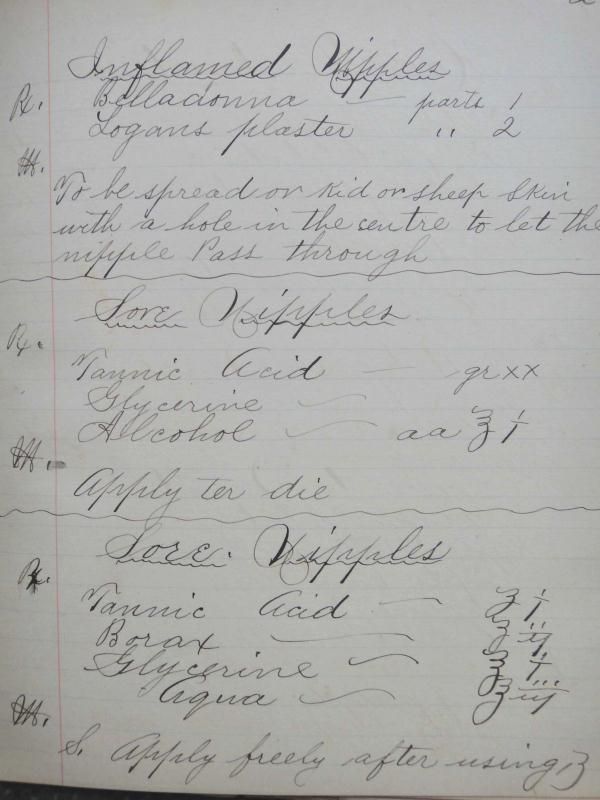 Inflamed Nipples
℞. Belladonna — parts 1
Logans plaster " 2
M.
To be spread on kid or sheep skin
with a hole in the centre to let the
nipple Pass through
Sore Nipples
℞.
Tannic Acid — gr xx
Glycerine
Alcohol — aa ʒ i
M.
Apply ter die
Sore Nipples
℞.
Tannic Acid — ʒ i
Borax — ʒ ij
Glycerine — ʒ i
Aqua — ʒ iij
M.
S. Apply freely after using